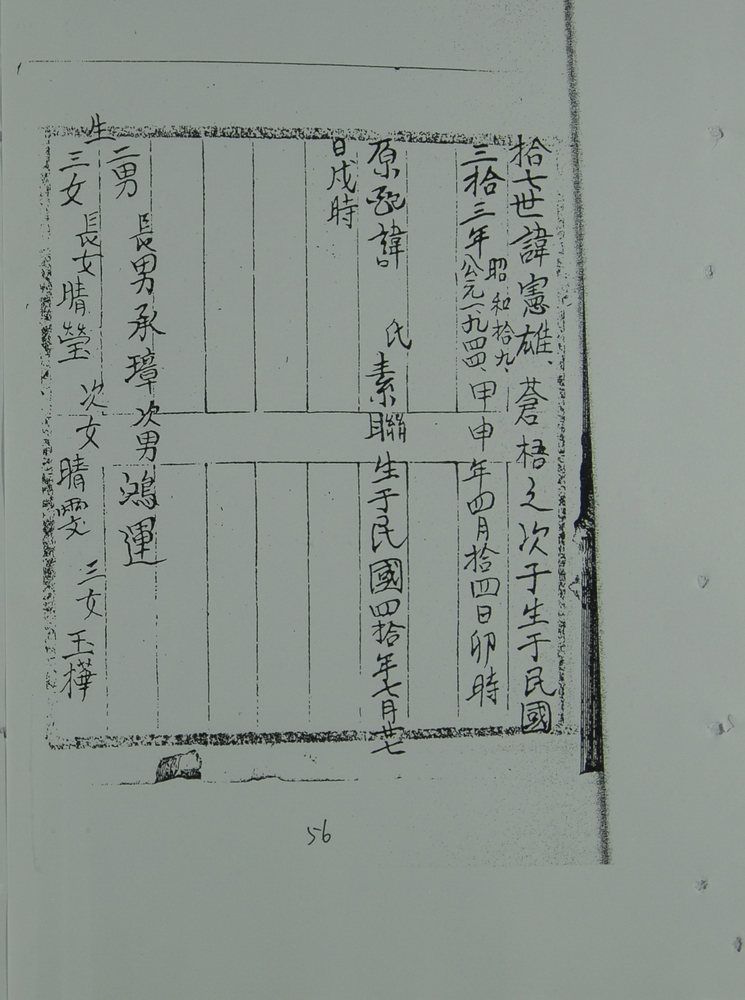 拾七世諱憲雄、蒼梧之次子生于民國
三拾三年昭和拾九、公元一九四四、甲申年四月拾四日卯時
原配諱 氏素聯生于民國四拾年七月廿七
日戌時
生二男 長男承璋次男鴻運
三女 長女晴瑩 次女晴雯 三女玉樺
56